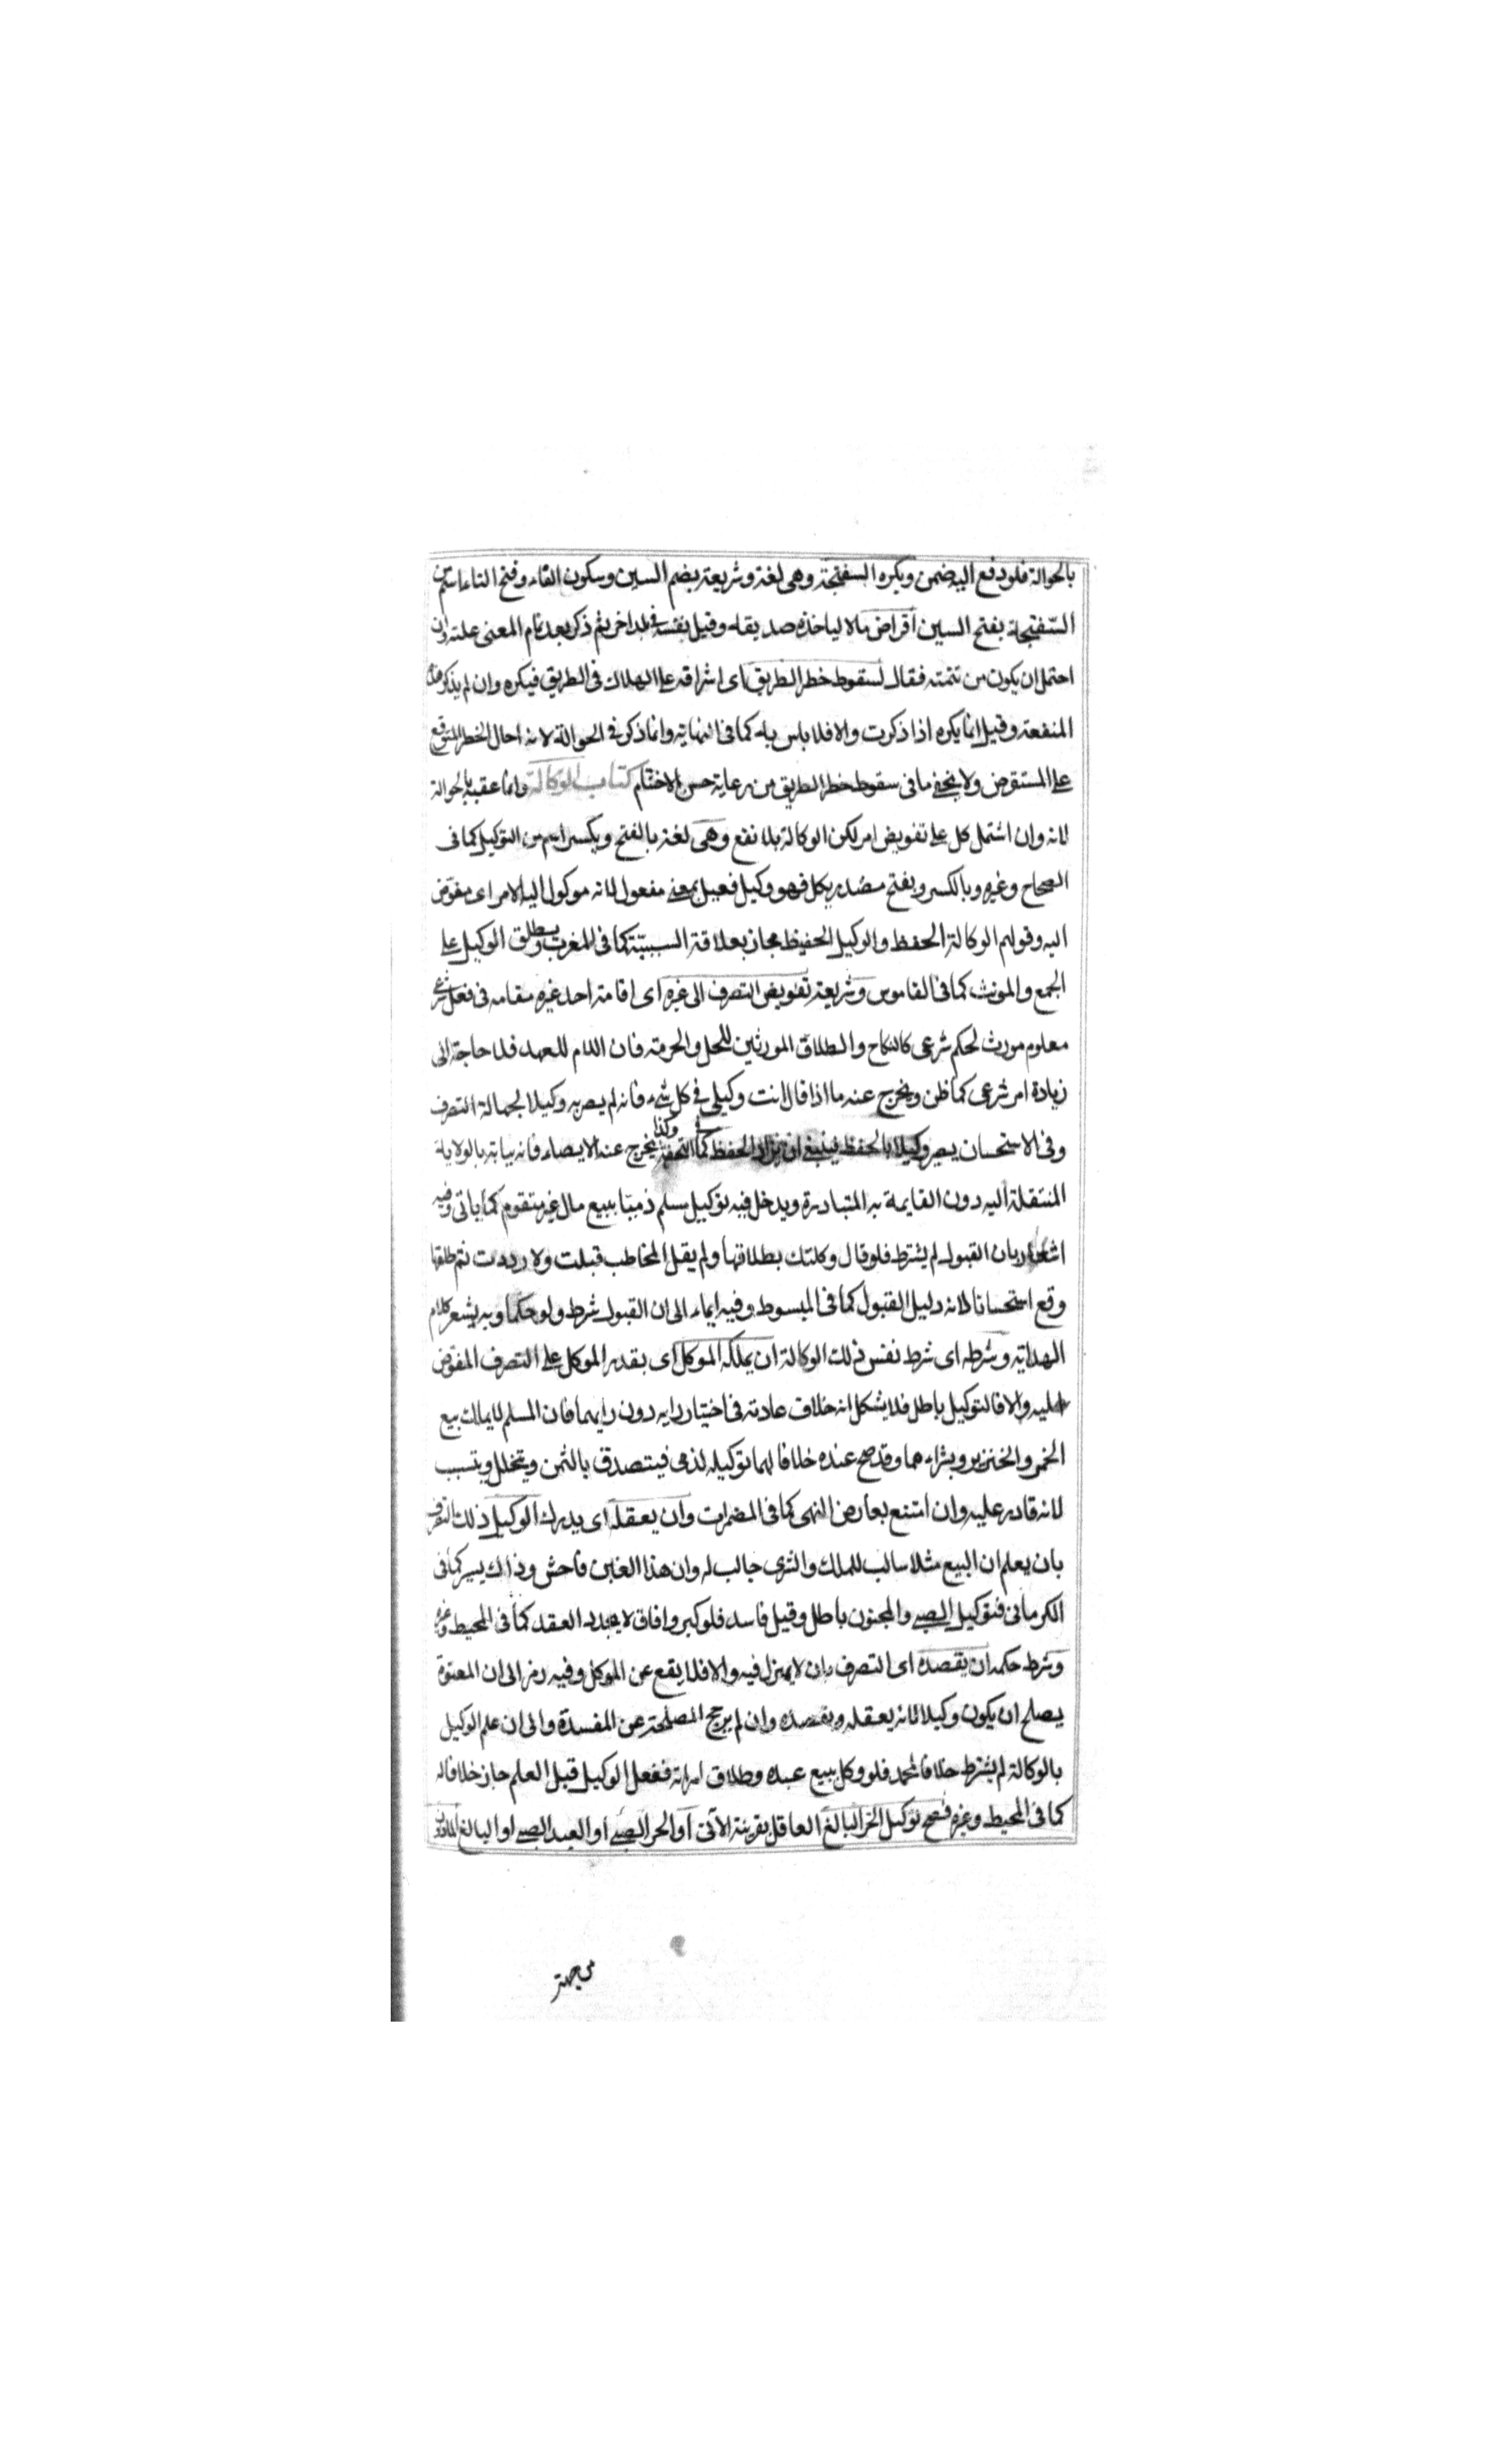 بالحوالة فلو دفع اليه ضمن ويكره السفتجة وهى لغة وشريعة بضم السين وسكون الفاء وفتح التاء اسم من
السفتجة بفتح السين اقراض ماله لياخذه صديقه وقيل نفسه فى بلد اخر ثم ذكر بعد تمام المعنى علته وان
احتمل ان يكون من تتمته فقال لسقوط خطر الطريق اى اشرافه على الهلاك فى الطريق فيكره وان لم يذكر هذه
المنفعة وقيل انما يكره اذا ذكرت والا فلا باس به كما فى النهاية وانما ذكر فى الحوالة لانه احال الخطر المتوقع
على المستقرض ولا يخفى ما فى سقوط خطر الطريق من رعاية حسن الاختتام كتاب الوكالة وانما عقبه بالحوالة
لانه وان اشتمل كل على تفويض امر لكن الوكالة بلا نفع وهى لغة بالفتح ويكسر اسم من التوكيل كما فى
الصحاح وغيره وبالكسر ويفتح مصدر يكل فهو وكيل فعيل بمعنى مفعول لانه موكول اليه الامر اى مفوض
اليه وقولهم الوكالة الحفظ والوكيل الحفيظ مجاز بعلاقة السببية كما فى المغرب ويطلق الوكيل على
الجمع والمونث كما فى القاموس وشريعة تفويض التصرف الى غيره اى اقامة احد غيره مقامه فى فعل شرعى
معلوم مورث لحكم شرعى كالنكاح والطلاق المورثين للحل والحرمة فان اللام للعهد فلا حاجة الى
زيادة امر شرعى كما ظن ويخرج عنه ما اذا قال انت وكيلى فى كل شىء فانه لم يصر به وكيلا لجهالة التصرف
وفى الاستحسان يصير وكيلا بالحفظ فينبغى ان يزاد الحفظ كما فى التحفة وكذا يخرج عنه الايصاء فانه نيابة بالولاية
المنتقلة اليه دون القايمة به المتبادرة ويدخل فيه توكيل مسلم ذميا ببيع مال غير متقوم كما ياتى وفيه
اشعار بان القبول لم يشترط فلو قال وكلتك بطلاقها ولم يقل المخاطب قبلت ولا رددت ثم طلقها
وقع استحسانا لانه دليل القبول كما فى المبسوط وفيه ايماء الى ان القبول شرط ولو حكما وبه يشعر كلام
الهداية وشرطه اى شرط نفس ذلك الوكالة ان يملكه الموكل اى يقدر الموكل على التصرف المفوض
اليه والا فالتوكيل باطل فلا يشكل انه خلاف عادته فى اختيار رايه دون رايهما فان المسلم لا يملك بيع
الخمر والخنزير وبشراءهما وقد صح عنده خلافا لهما توكيله لذمى فيتصدق بالثمن ويتخلل ويتسبب
لانه قادر عليه وان امتنع بعارض النهى كما فى المضمرات وان يعقله اى يدرك الوكيل ذلك التصرف
بان يعلم ان البيع مثلا سالب للملك والشرى جالب له وان هذا الغبن فاحش وذاك يسير كما فى
الكرمانى فتوكيل الصبى والمجنون باطل وقيل فاسد فلو كبر وافاق لا يجدد العقد كما فى المحيط وغيره
وشرط حكمه ان يقصده اى التصرف بان لا يهزل فيه والا فلا يقع عن الموكل وفيه رمز الى ان المعتوة
يصلح ان يكون وكيلا لانه يعقله ويقصده وان لم يرجح المصلحة عن المفسدة والى ان علم الوكيل
بالوكالة لم يشترط خلافا لمحمد فلو وكل ببيع عبده وطلاق امراته ففعل الوكيل قبل العلم جاز خلافا له
كما فى المحيط وغيره فصح توكيل الحر البالغ العاقل بقرينة الآتى او الحر الصبى او العبد الصبى او البالغ الماذون